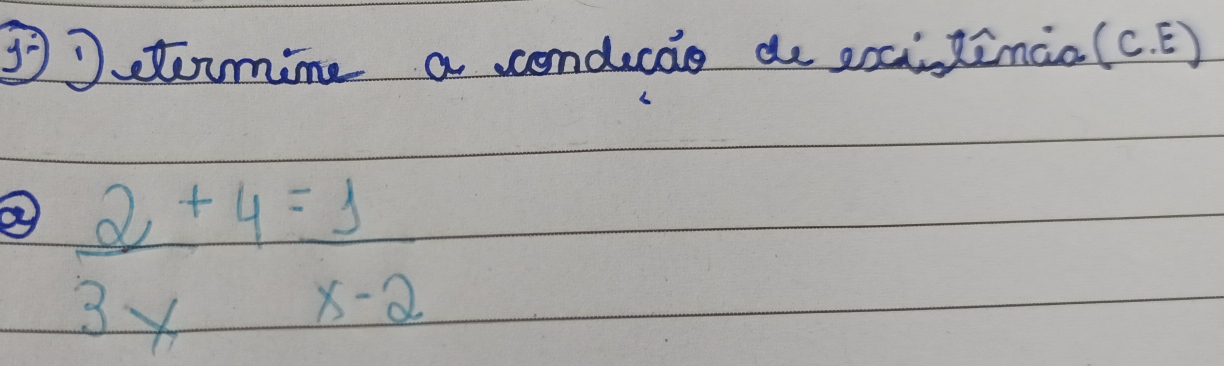 1-) Determine a condição de existência (C.E)
a) 2 + 4 = 1
3x x-2